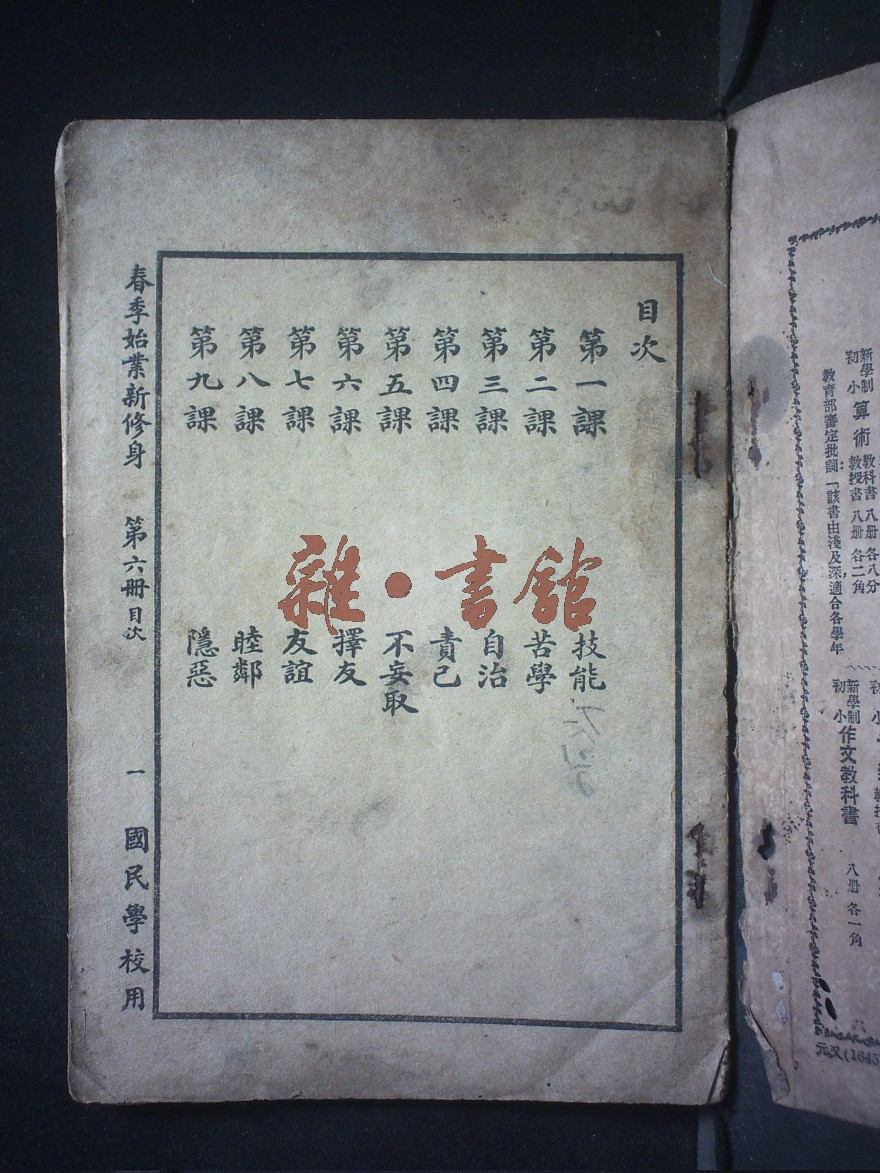 目次
第一課 技能
第二課 苦學
第三課 自治
第四課 責己
第五課 不妄取
第六課 擇友
第七課 友誼
第八課 睦鄰
第九課 隱惡
春季始業新修身 第六册 目次 一 國民學校用
雜·書館
新學制
初小 算術 教科書 八册 各八分
教授書 八册 各二角
教育部審定批詞「該書由淺及深適合各學年
新學制
初小 作文教科書 八册 各一角
元又(1645